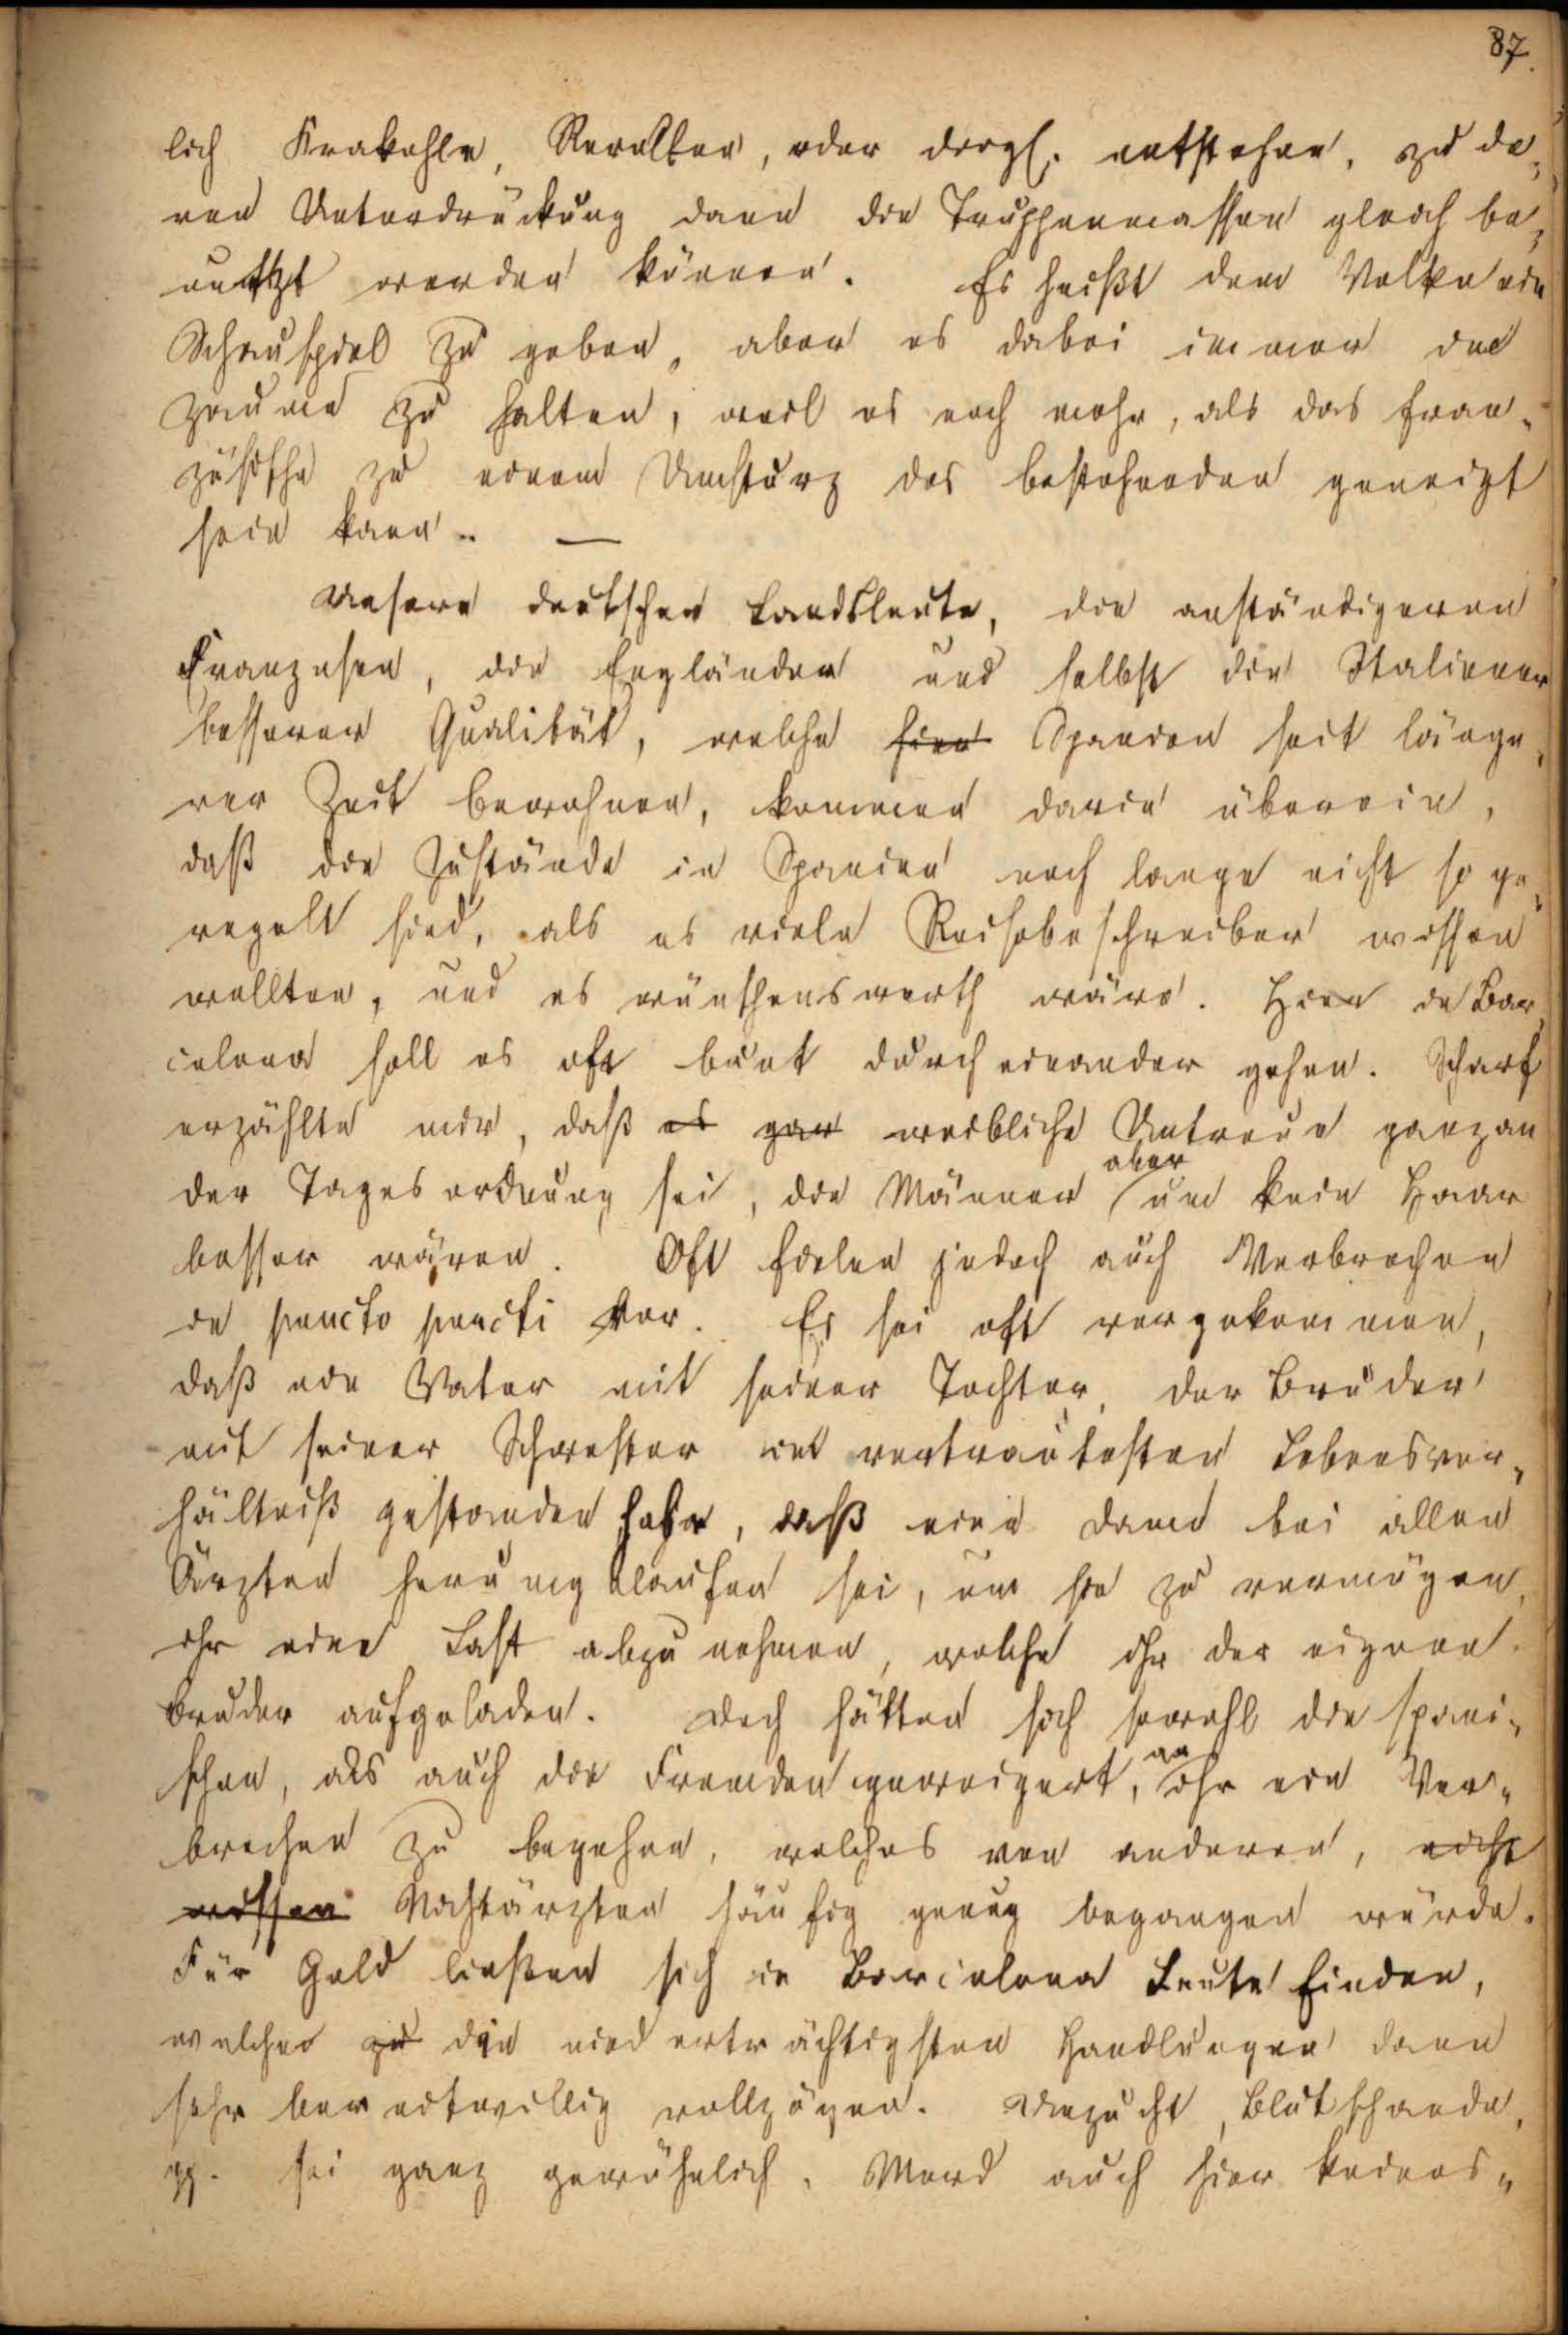 87.
lich Krakehle, Revolten, oder dergl. entstehen, zu de-
ren Unterdrückung dann die Truppenmassen gleich be-
nutzt werden können. Es heißt dem Volke ein
Schauspiel zu geben, aber es dabei immer im
Zaume zu halten, weil es noch mehr, als das fran-
zösische zu einem Umsturz des bestehenden geneigt
sein kann. —
Unsere deutschen Landsleute, die anständigeren
Franzosen, die Engländer und selbst die Italiener
besserer Qualität, welche hier Spanien seit länge-
rer Zeit bewohnen, kommen darin überein,
daß die Zustände in Spanien noch lange nicht so ge-
regelt sind, als es viele Reisebeschreiber wissen
wollten, und es wünschenswerth wäre. Hier in Bar-
celona soll es oft bunt durch einander gehen. Scharf
erzählte mir, daß es gar weibliche Untreue ganz an
der Tagesordnung sei, die Männer aber um kein Haar
besser wären. Oft fielen jedoch auch Verbrechen
in puncto puncti vor. Es sei oft vorgekommen,
daß ein Vater mit seiner Tochter, der Bruder
mit seiner Schwester im vertrautesten Lebensver-
hältniß gestanden habe, daß eine Dame bei allen
Ärzten herumgelaufen sei, um sie zu vermögen,
ihr eine Last abzunehmen, welche ihr der eigene
Bruder aufgeladen. Doch hätten sich sowohl die spani-
schen, als auch die Fremden geweigert, an ihr ein Ver-
brechen zu begehen, welches von anderen, nicht
wissen Nachtärzten häufig genug begangen würde.
Für Geld ließen sich in Barcelona Leute finden,
welche zu die niederträchtigsten Handlungen dann
sehr bereitwillig vollzögen. Unzucht, Blutschande,
pp. sei ganz gewöhnlich, Mord auch hier keines-